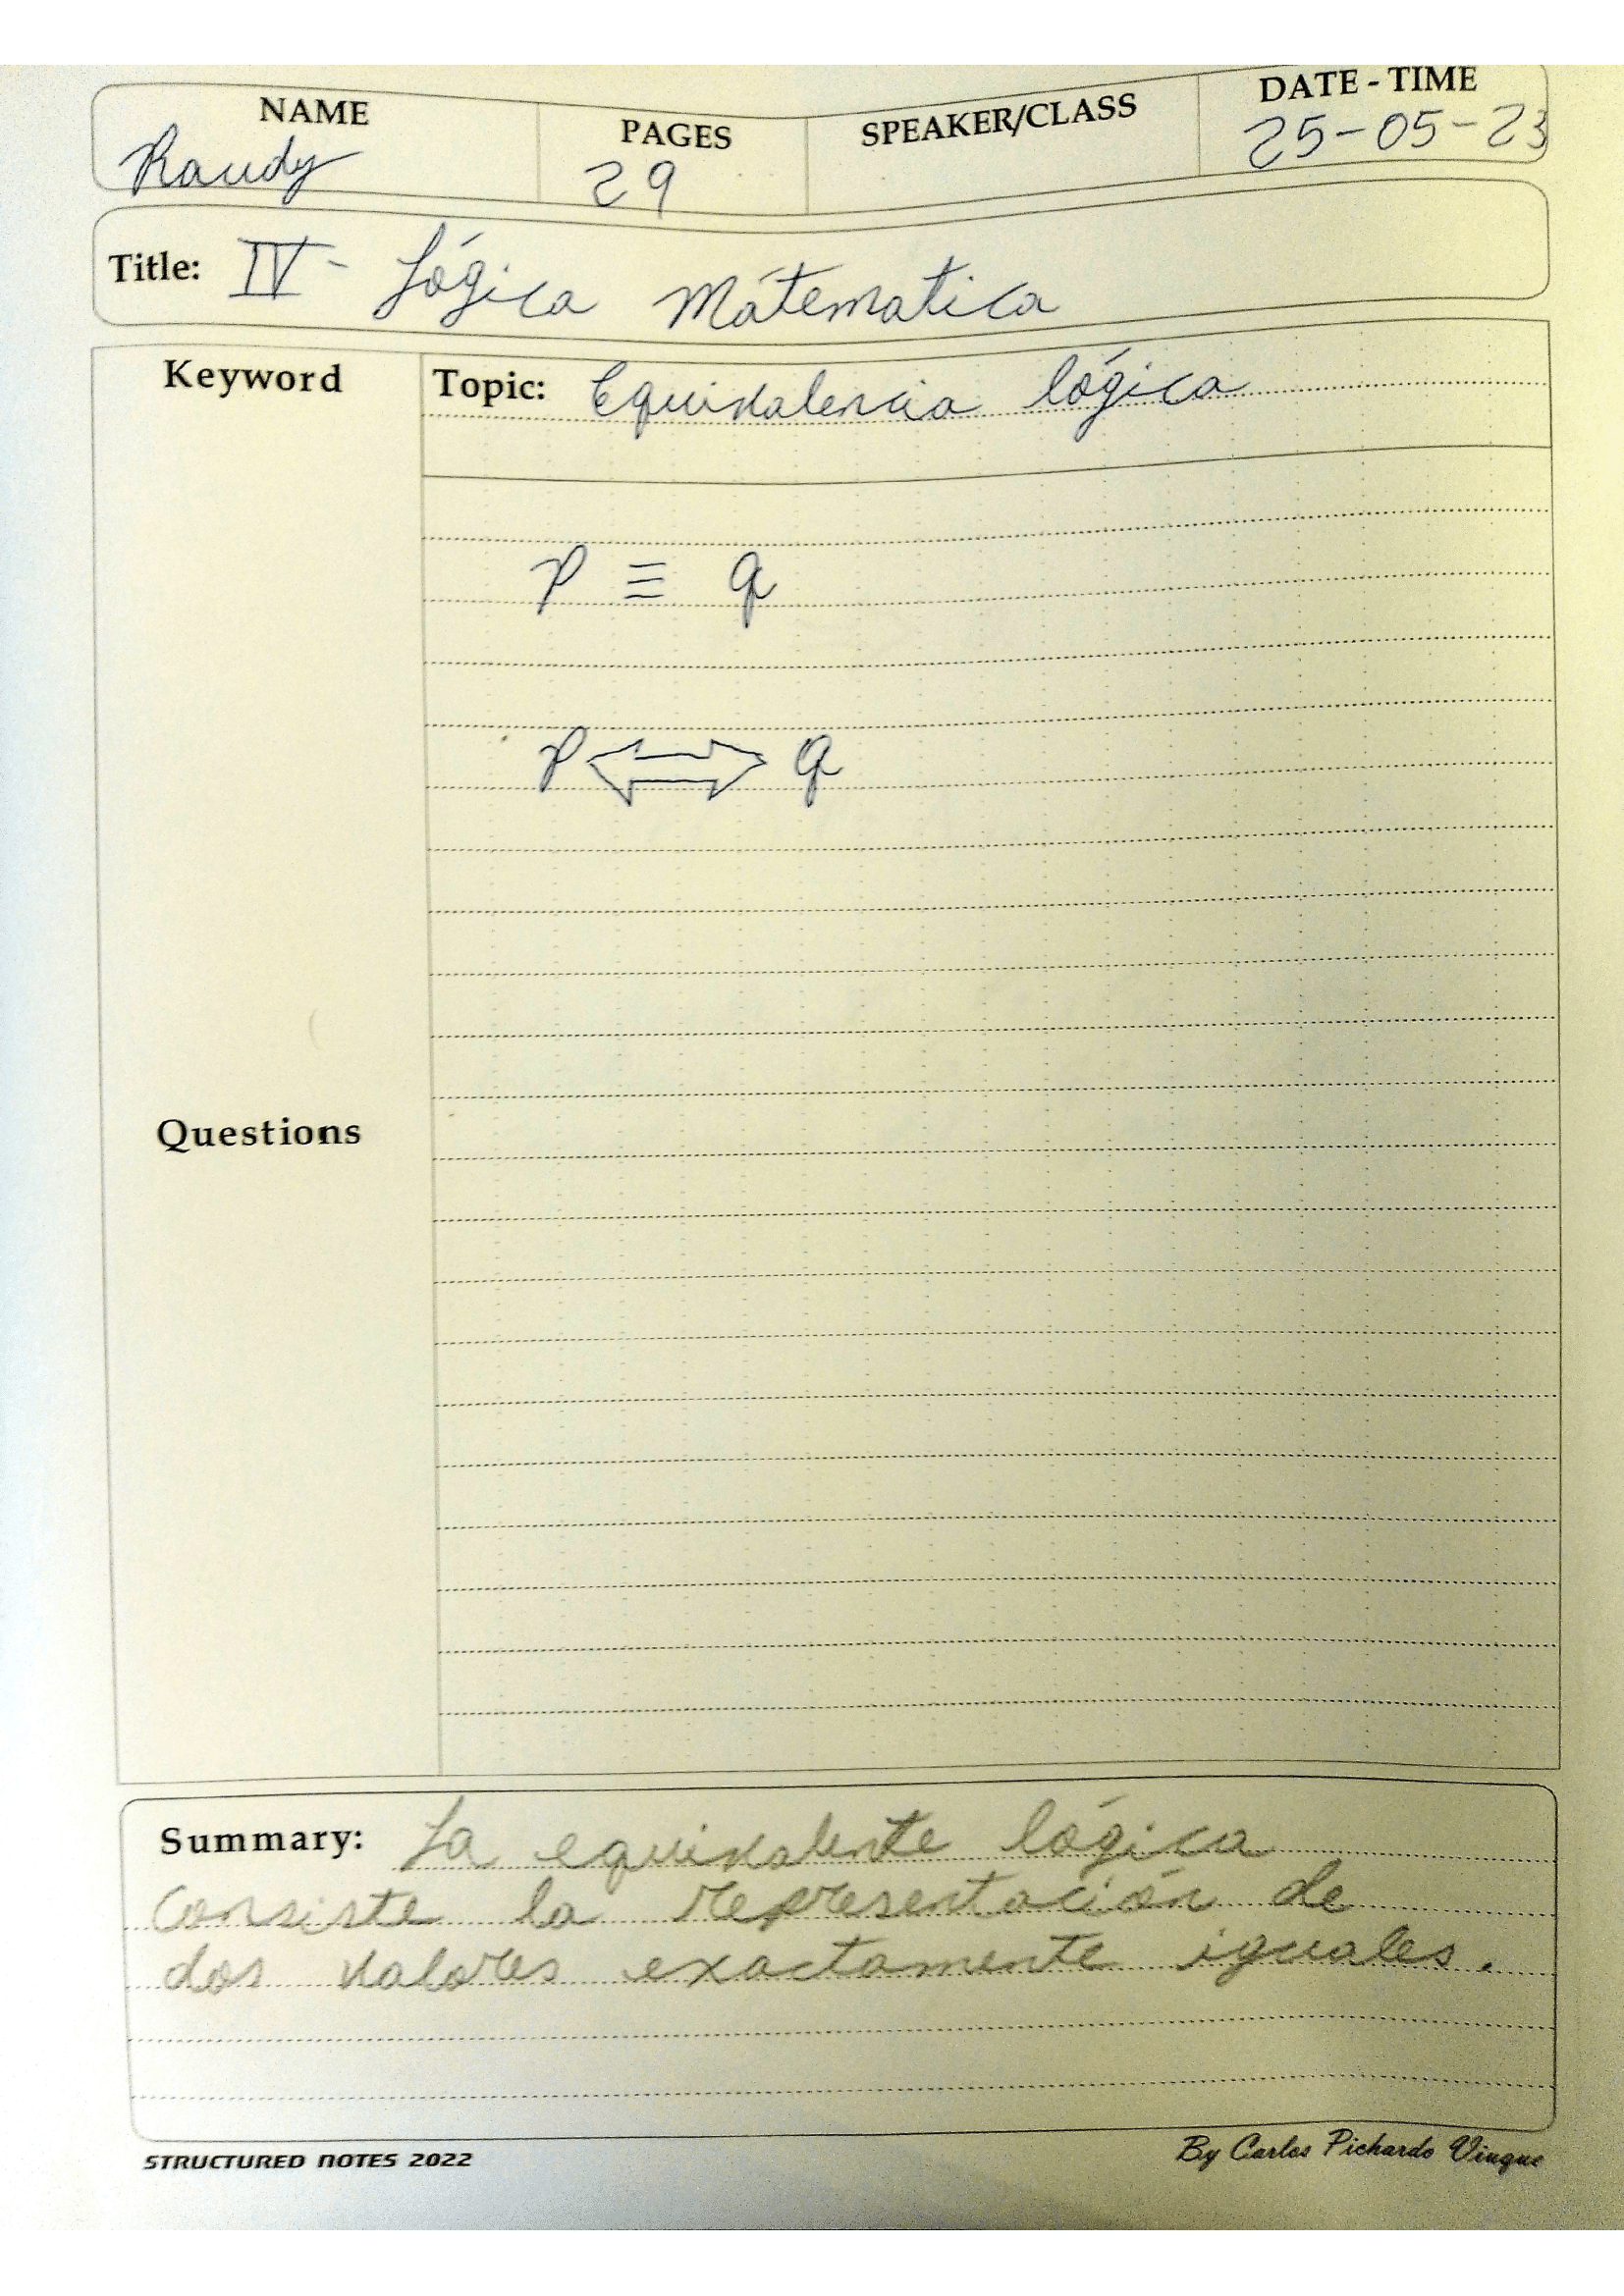 NAME PAGES SPEAKER/CLASS DATE - TIME
Raudy 29 25-05-23
Title: IV - Lógica Mátematica
Keyword Topic: Equivalencia lógica
p ≡ q
p ⟺ q
Questions
Summary: La equivalente lógica
Consiste la representación de
dos valores exactamente iguales.
STRUCTURED NOTES 2022 By Carlos Pichardo Viuque